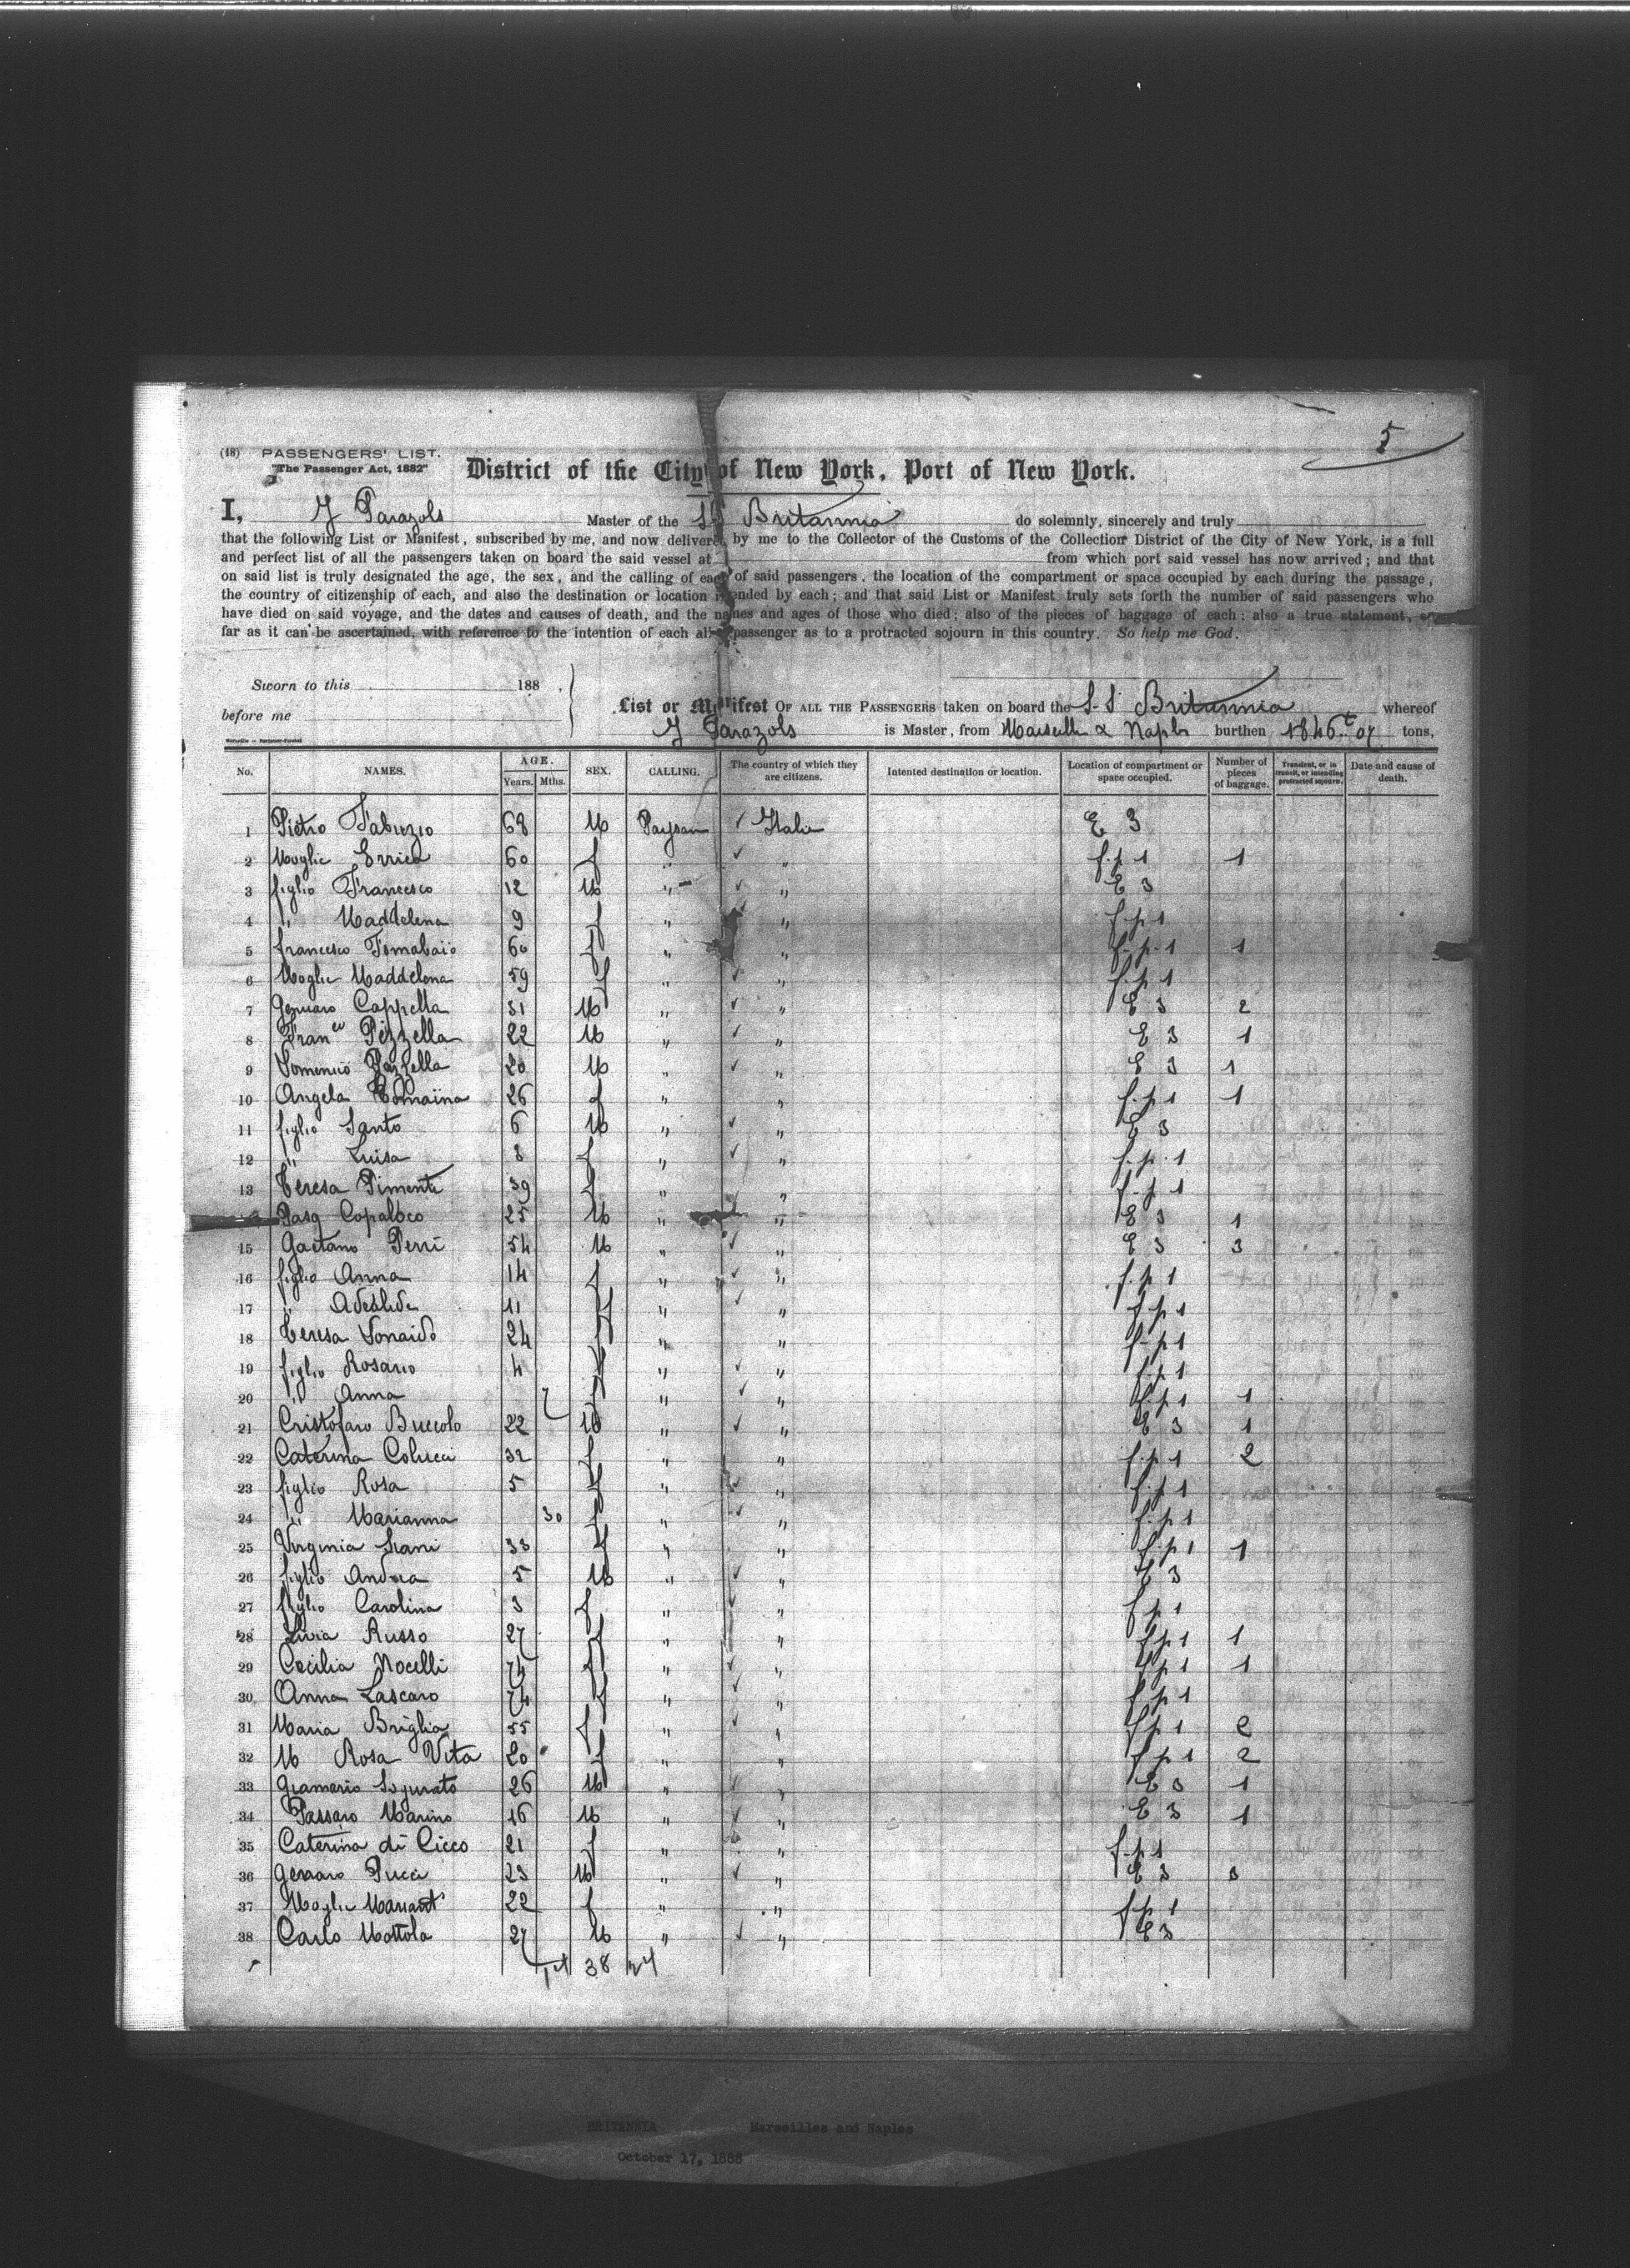 5
(18) PASSENGERS' LIST.
"The Passenger Act, 1882"
District of the City of New York, Port of New York.
I, J Parazols Master of the SS Britannia do solemnly, sincerely and truly
that the following List or Manifest, subscribed by me, and now delivered by me to the Collector of the Customs of the Collection District of the City of New York, is a full
and perfect list of all the passengers taken on board the said vessel at from which port said vessel has now arrived; and that
on said list is truly designated the age, the sex, and the calling of each of said passengers, the location of the compartment or space occupied by each during the passage,
the country of citizenship of each, and also the destination or location intended by each; and that said List or Manifest truly sets forth the number of said passengers who
have died on said voyage, and the dates and causes of death, and the names and ages of those who died; also of the pieces of baggage of each; also a true statement, so
far as it can be ascertained, with reference to the intention of each alien passenger as to a protracted sojourn in this country. So help me God.
Sworn to this 188 .
before me
List or Manifest OF ALL THE PASSENGERS taken on board the S-S Britannia whereof
J Parazols is Master, from Marseille & Naples burthen tons,
No. NAMES. AGE. Years. Mths. SEX. CALLING. The country of which they are citizens. Intented destination or location. Location of compartment or space occupied. Number of pieces of baggage. Transient, or in transit, or intending protracted sojourn. Date and cause of death.
1 Pietro Fabrizio 68 M Paysan Italie E 3
2 Moglie Errica 60 f " " f.p 1 1
3 figlio Francesco 12 M " " E 3
4 " Maddelena 9 f " " f.p 1
5 francesco 60 f " " f.p. 1 1
6 Moglie Maddelena 59 f " " f.p 1
7 Gennaro Cappella 31 M " " E 3 2
8 Franco Pizzella 22 M " " E 3 1
9 Domenico Pizzella 20 M " " E 3 1
10 Angela 26 f " " f.p 1 1
11 figlio Santo 6 M " " E 3
12 " Luisa 8 f " " f.p. 1
13 Teresa Pimente 39 f " " f.p 1
Pasq Copaloco 25 M " " E 3 1
15 Gaetano Perri 54 M " " E 3 3
16 figlio Anna 14 f " " f.p 1
17 " Adelaide 11 f " " f.p 1
18 Teresa 24 f " " f.p 1
19 figlio Rosario 4 f " " f.p 1
20 " Anna 7 f " " f.p 1 1
21 Cristofaro Buccolo 22 M " " E 3 1
22 Caterina Colucci 32 f " " f.p 1 2
23 figlio Rosa 5 f " " f.p 1
24 " Marianna 30 f " " f.p 1
25 Virginia 33 f " " f.p 1 1
26 figlio Andrea 5 M " " E 3
27 figlio Carolina 3 f " " f p 1
28 Livia Russo 27 f " " f.p 1 1
29 Cecilia Nocelli 74 f " " f.p 1 1
30 Anna Lascaro 74 f " " f.p 1
31 Maria Briglia 55 f " " f.p 1 2
32 M Rosa Vita 20 f " " f.p 1 2
33 26 M " " E 3 1
34 Passaro Marino 46 M " " E 3 1
35 Caterina di Cicco 21 f " " f.p 1
36 Gennaro Pucci 23 M " " E 3 3
37 Moglie 22 f " " f.p 1
38 Carlo Mottola 27 M " " E 3
38
BRITANNIA Marseilles and Naples
October 17, 1888